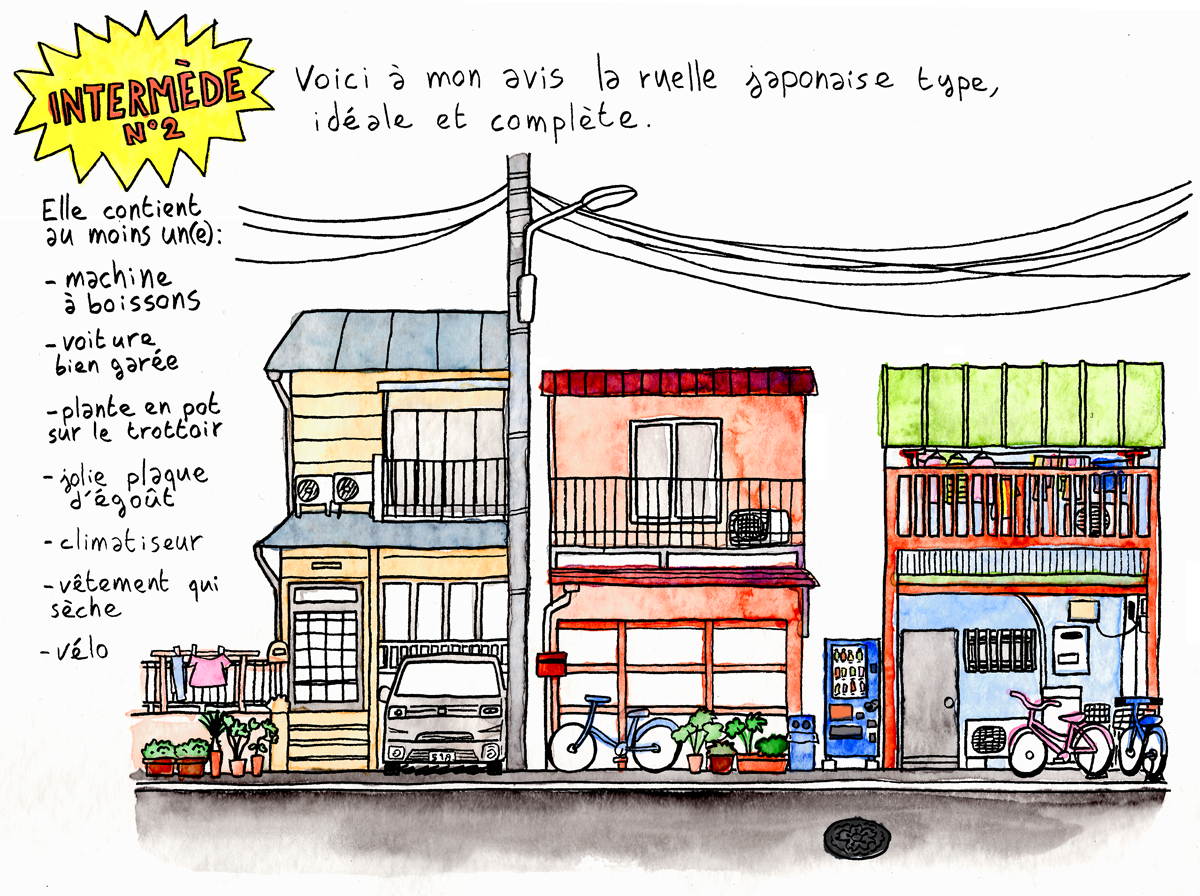 INTERMÈDE
N°2
Voici à mon avis la ruelle japonaise type,
idéale et complète.
Elle contient
au moins un(e):
- machine
à boissons
- voiture
bien garée
- plante en pot
sur le trottoir
- jolie plaque
d'égoût
- climatiseur
- vêtement qui
sèche
- vélo